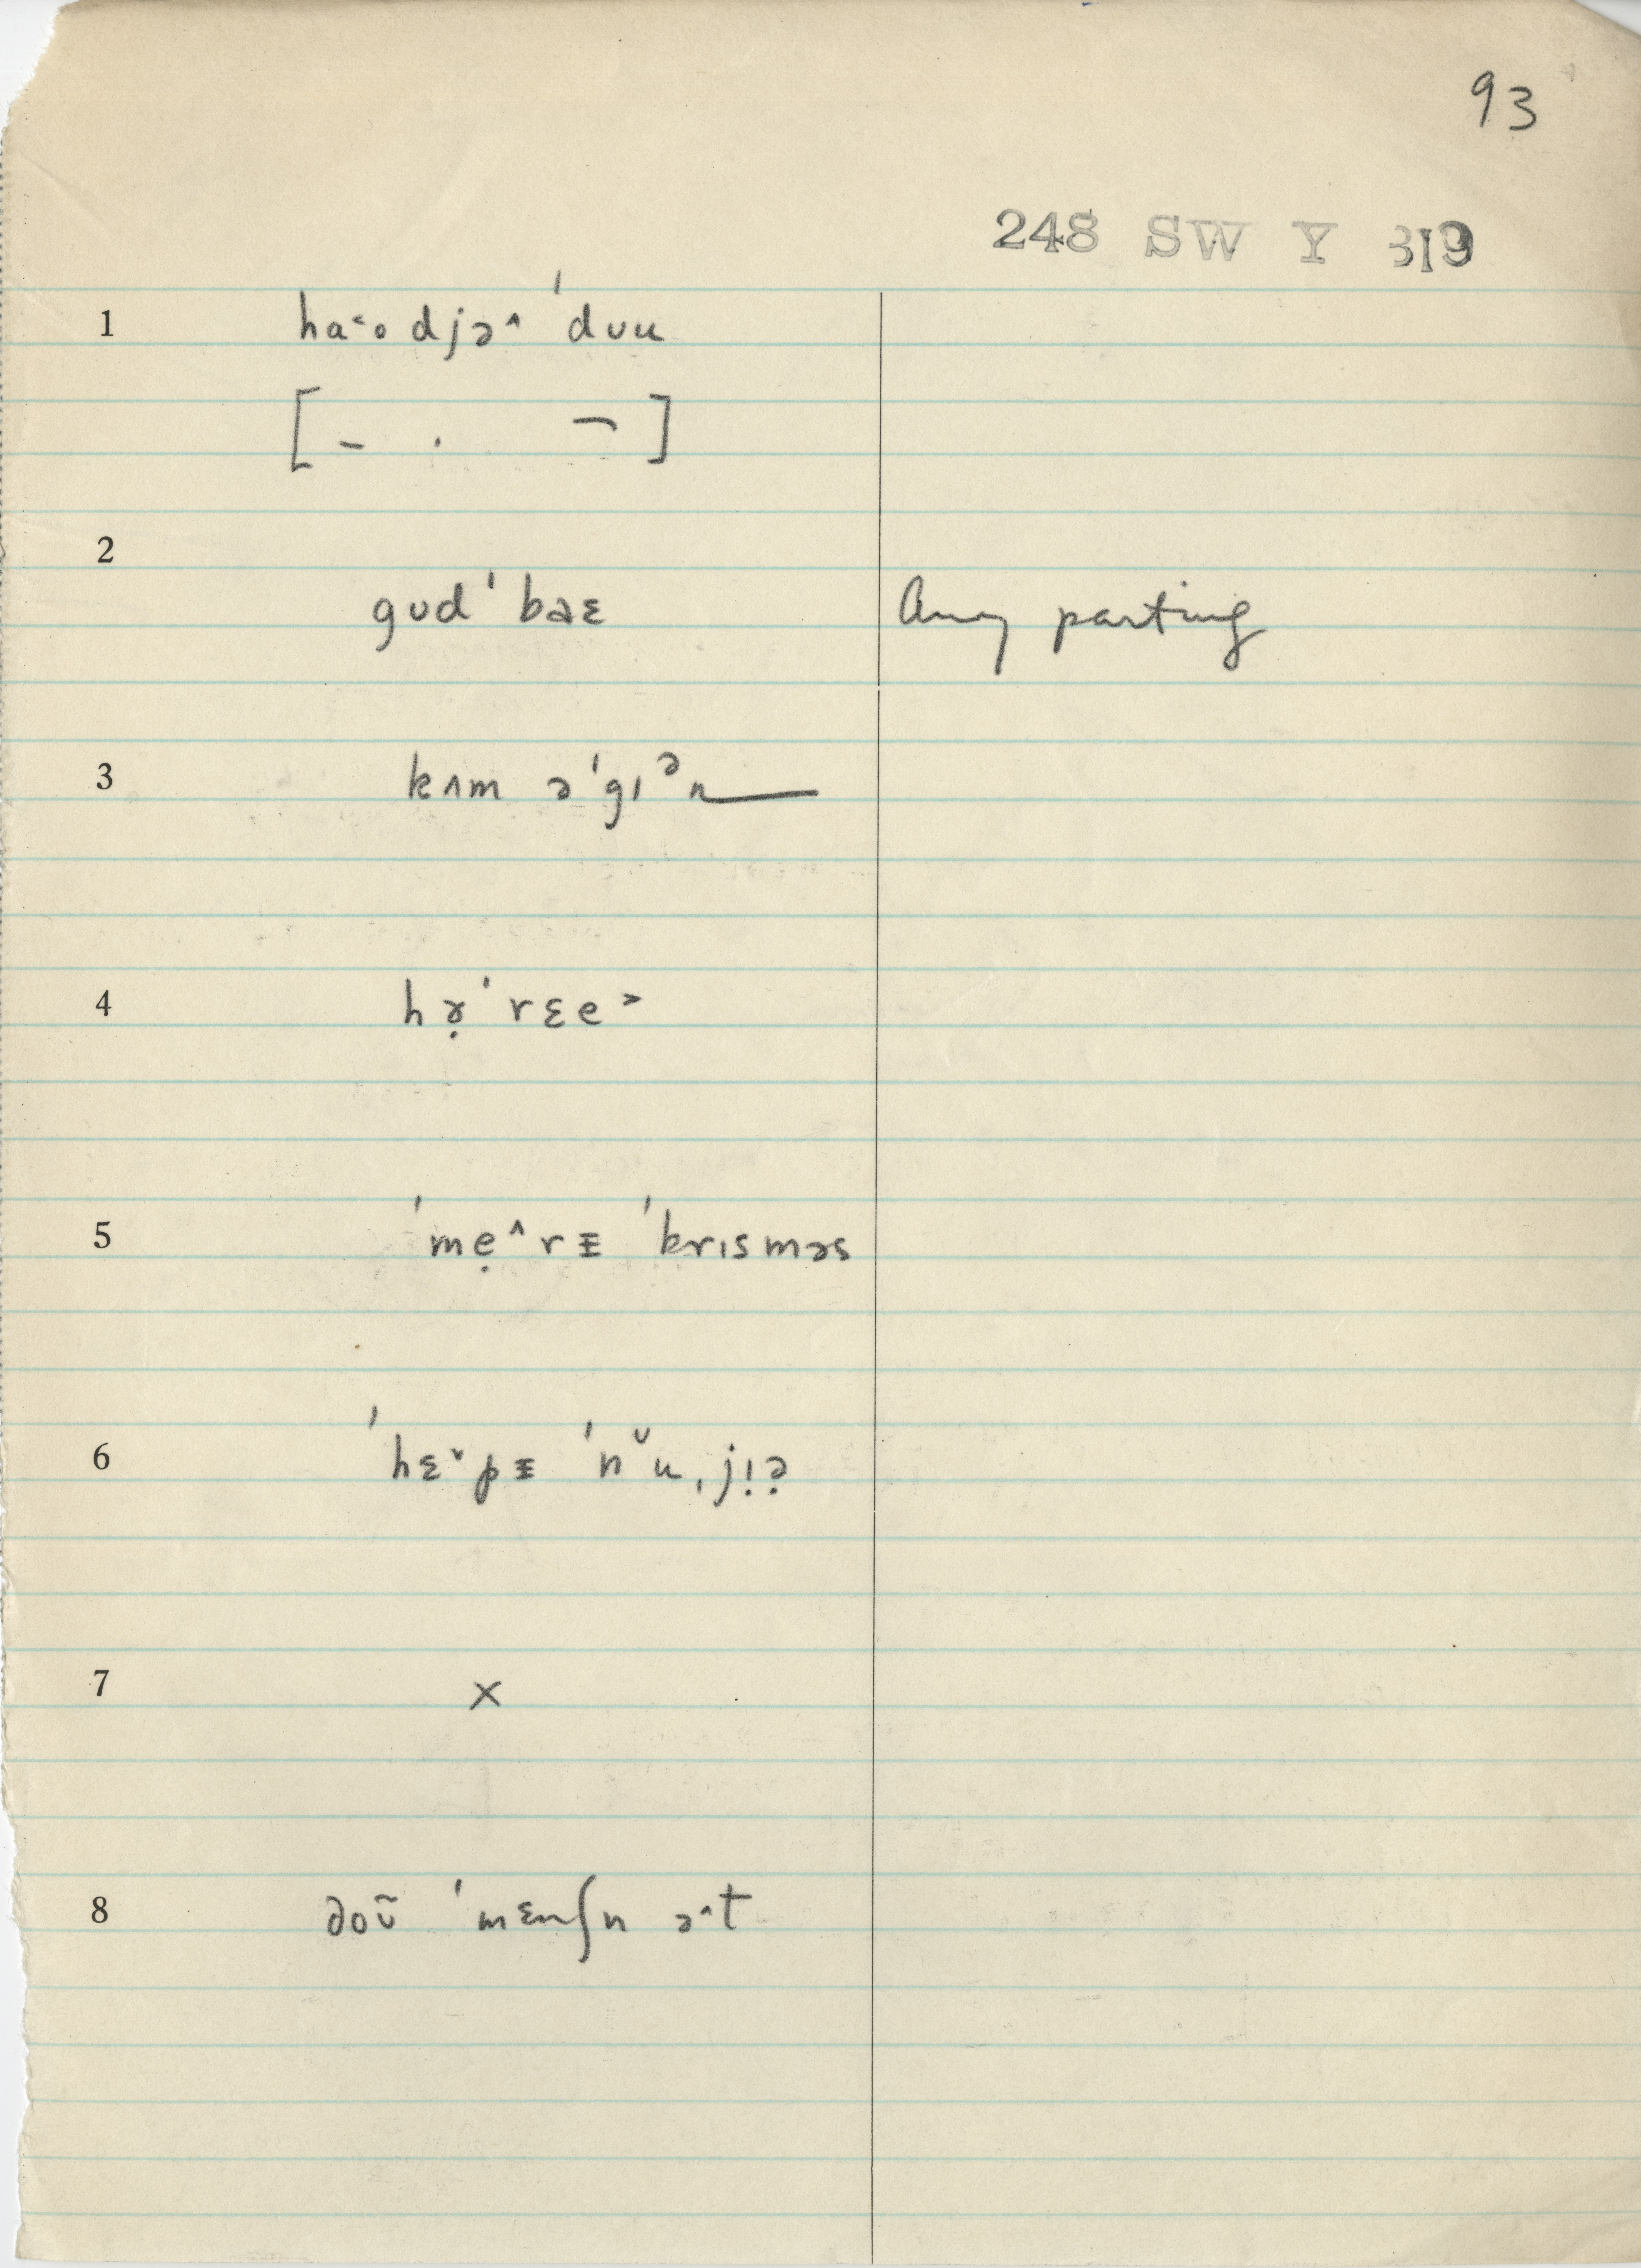 93
248 SW Y 319
1 ha˂o djə^ ˈdʊu
[– . ¬]
2
gʊdˈbaɛ Any parting
3 kʌm əˈgɪᵊn
4 hə̣ˈrɛe˃
5 ˈmẹ^rᵻ ˈkrɪsməs
6 ˈhɛˇpᵻ ˈnᵘ̆u ˌjɪ̣ə̣
7 x
8 doʊ̃ ˈmɛnʃn ə^t